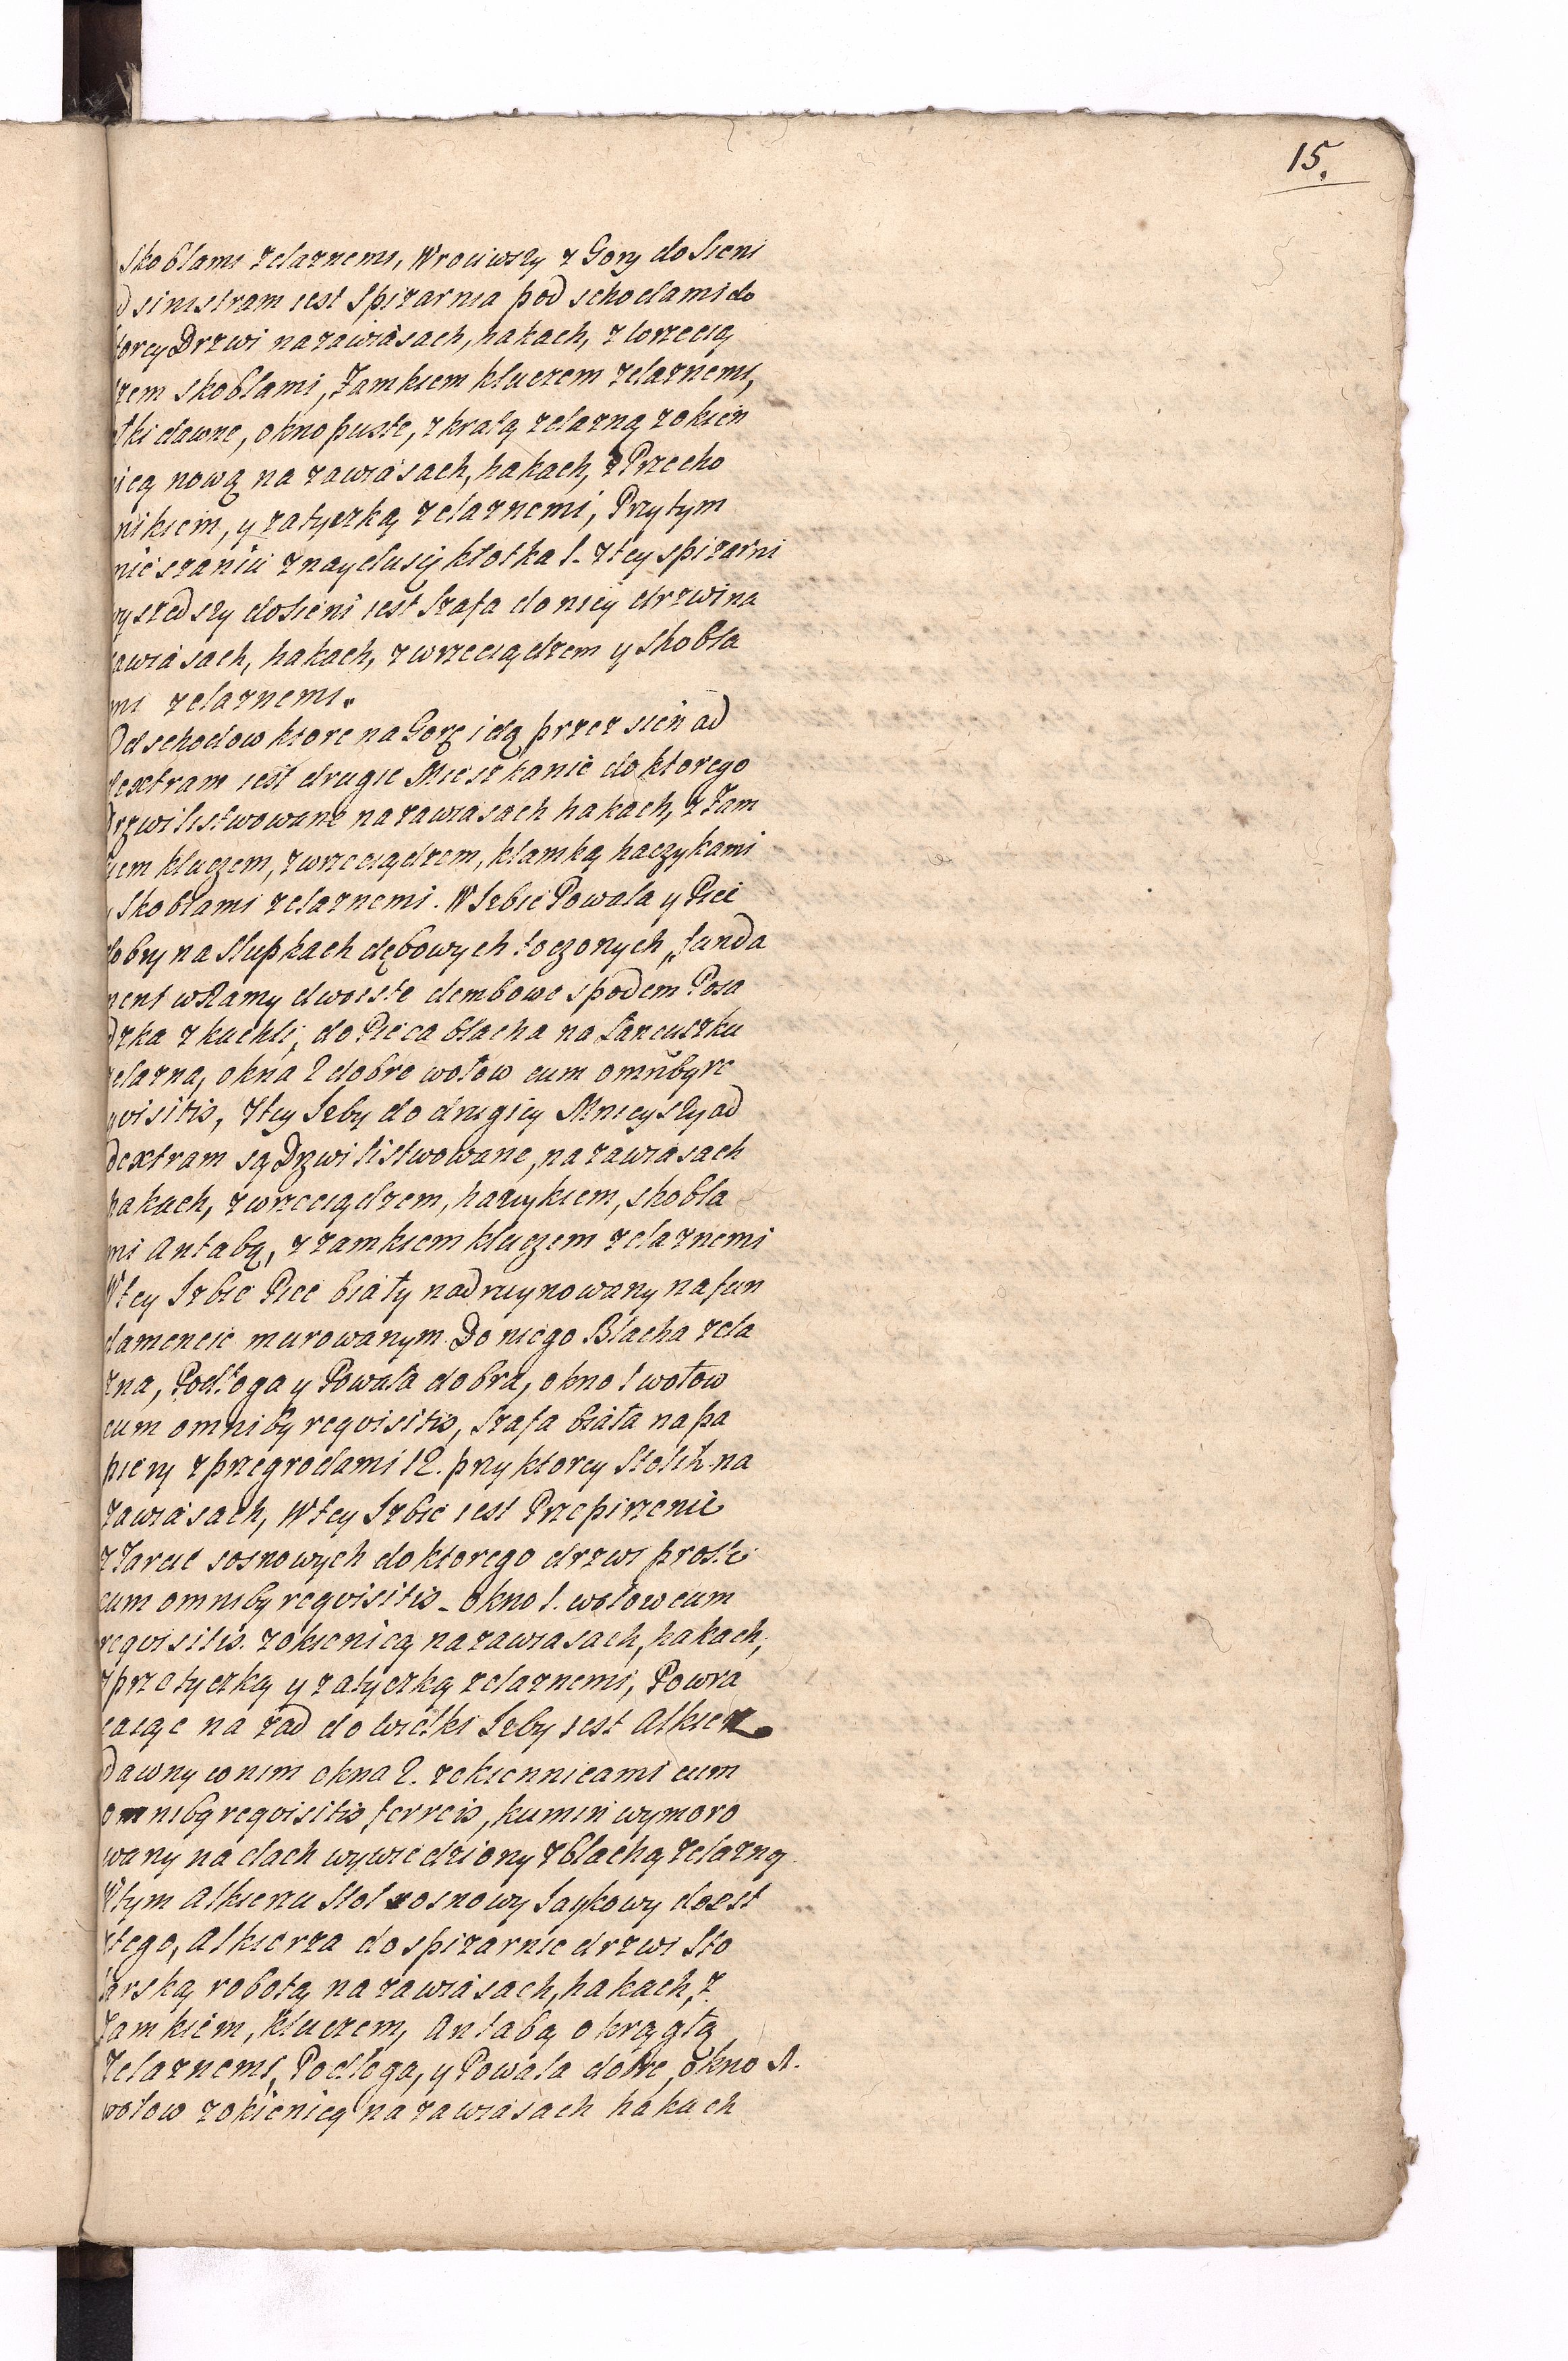 15.
Skoblami zelaznemi, Wrociwszy z Gory do Sieni
d sinistram iest Spizarnia pod schodami do
torey Drzwi na zawiasach, hakach, z wrzecią
rzem skoblami, Zamkiem kluczem zelaznemi,
łki dawne, okno puste, z kratą zelazną z okien
icą nową na zawiasach, hakach, z Przecho
nikiem, y zatyczką zelaznemi, Przy tym
nieszaniu znaydusię kłotka 1. Z tey spizarni
yszedszy do Sieni iest Szafa do niey drzwi na
awiasach, hakach, z wrzeciądzem y Skobla
mi zelaznemi.
Od schodow ktore na Gorę idą przez sień ad
dextram iest drugie Mieszkanie do ktorego
Drzwi listwowane na zawiasach hakach, z Zam
kiem kluczem, z wrzeciądzem, klamką haczykami
y Skoblami zelaznemi. W Izbie Powala y Piec
dobry na Słupkach dębowych toczonych, funda
ment w Ramy dwoiste dembowe spodem Posa
dzka z kachli, do Pieca blacha na Łancuszku
zelazna, okna 2 dobre w ołow cum omnibq re
qvisitis, Z tey Izby do drugiey Mnieyszy ad
dextram są Drzwi listwowane, na zawiasach
hakach, z wrzeciądzem, haczykiem, skobla
mi Antabą, z zamkiem kluczem zelaznemi
W tey Izbie Piec biały nadruynowany na fun
damencie murowanym. Do niego Blacha zela
zna, Podłoga y Powała dobra, okno 1 w ołow
cum omnibq reqvisitis, Szafa biała na pa
piery z przegrodami 12. przy ktorey Stolik na
zawiasach, W tey Izbie iest Przepirzenie
z Tarcic sosnowych do ktorego drzwi proste
cum omnibq reqvisitis - okno 1. w ołow cum
reqvisitis. z okienicą na zawiasach, hakach,
z przetyczką y zatyczką zelaznemi, Powra
caiąc na zad do wielki Izby iest Alkierz
dawny w nim okna 2. z okiennicami cum
omnibq reqvisitis ferreis, kumin wymoro
wany na dach wywiedziony z blachą zelazną
W tym Alkierzu Stol sosnowy Saykowy doest
z tego, Alkierza do spizarnie drzwi Sto
larską robotą na zawiasach, hakach, z
Zamkiem, kluczem, Antabą okrągłą
Zelaznemi, Podłoga, y Powała dobre, okno 1.
w ołow z okienicą na zawiasach hakach